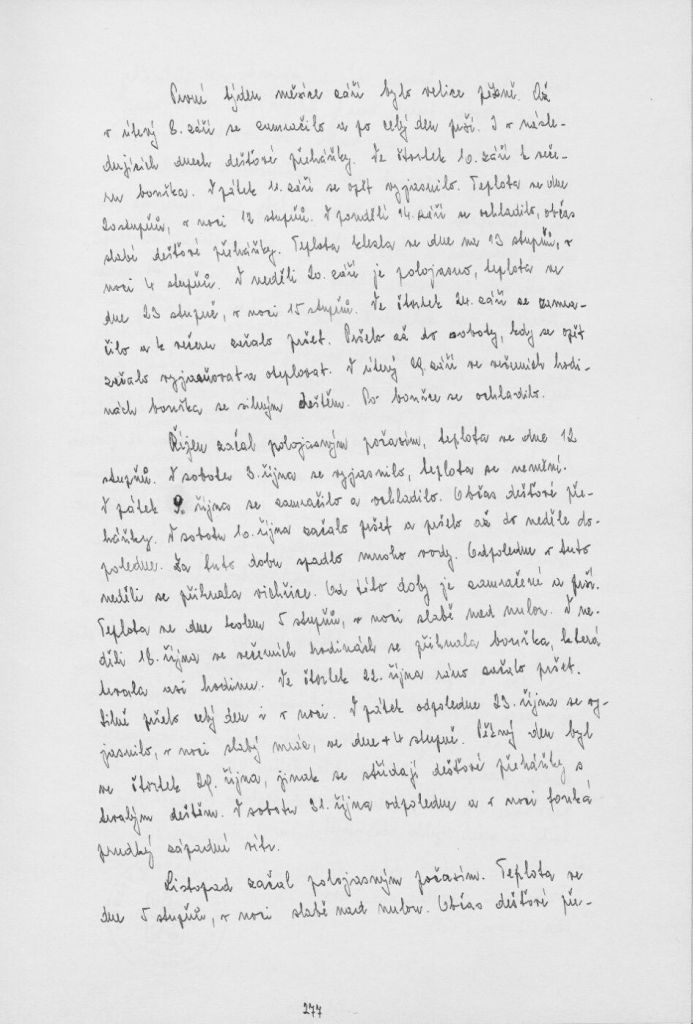 První týden měsíce září bylo velice pěkně. Až
v úterý 8. září se zamračilo a po celý den prší. I v násle-
dujících dnech dešťové přeháňky. Ve čtvrtek 10. září k veče-
ru bouřka. V pátek 11. září se opět vyjasnilo. Teplota ve dne
20 stupňů, v noci 12 stupňů. V pondělí 14. září se ochladilo, občas
slabé dešťové přeháňky. Teplota klesla ve dne na 13 stupňů, v
noci 4 stupňů. V neděli 20. září je polojasno, teplota ve
dne 23 stupně, v noci 15 stupňů. Ve čtvrtek 24. září se zamra-
čilo a k večeru začalo pršet. Pršelo až do soboty, kdy se opět
začalo vyjasňovat a oteplovat. V úterý 29. září ve večerních hodi-
nách bouřka se silným deštěm. Po bouřce se ochladilo.
Říjen začal polojasným počasím, teplota ve dne 12
stupňů. V sobotu 3. října se vyjasnilo, teplota se nemění.
V pátek 9. října se zamračilo a ochladilo. Občas dešťové pře-
háňky. V sobotu 10. října začalo pršet a pršelo až do neděle do-
poledne. Za tuto dobu spadlo mnoho vody. Odpoledne v tuto
neděli se přihnala vichřice. Od této doby je zamračené a prší.
Teplota ve dne kolem 5 stupňů, v noci slabě nad nulou. V ne-
děli 18. října ve večerních hodinách se přihnala bouřka, která
trvala asi hodinu. Ve čtvrtek 22. října ráno začalo pršet.
Silně pršelo celý den i v noci. V pátek odpoledne 23. října se vy-
jasnilo, v noci slabý mráz, ve dne + 4 stupně. Pěkný den byl
ve čtvrtek 29. října, jinak se střídají dešťové přeháňky s
trvalým deštěm. V sobotu 31. října odpoledne a v noci fouká
prudký západní vítr.
Listopad začal polojasným počasím. Teplota ve
dne 5 stupňů, v noci slabě nad nulou. Občas dešťové pře-
277